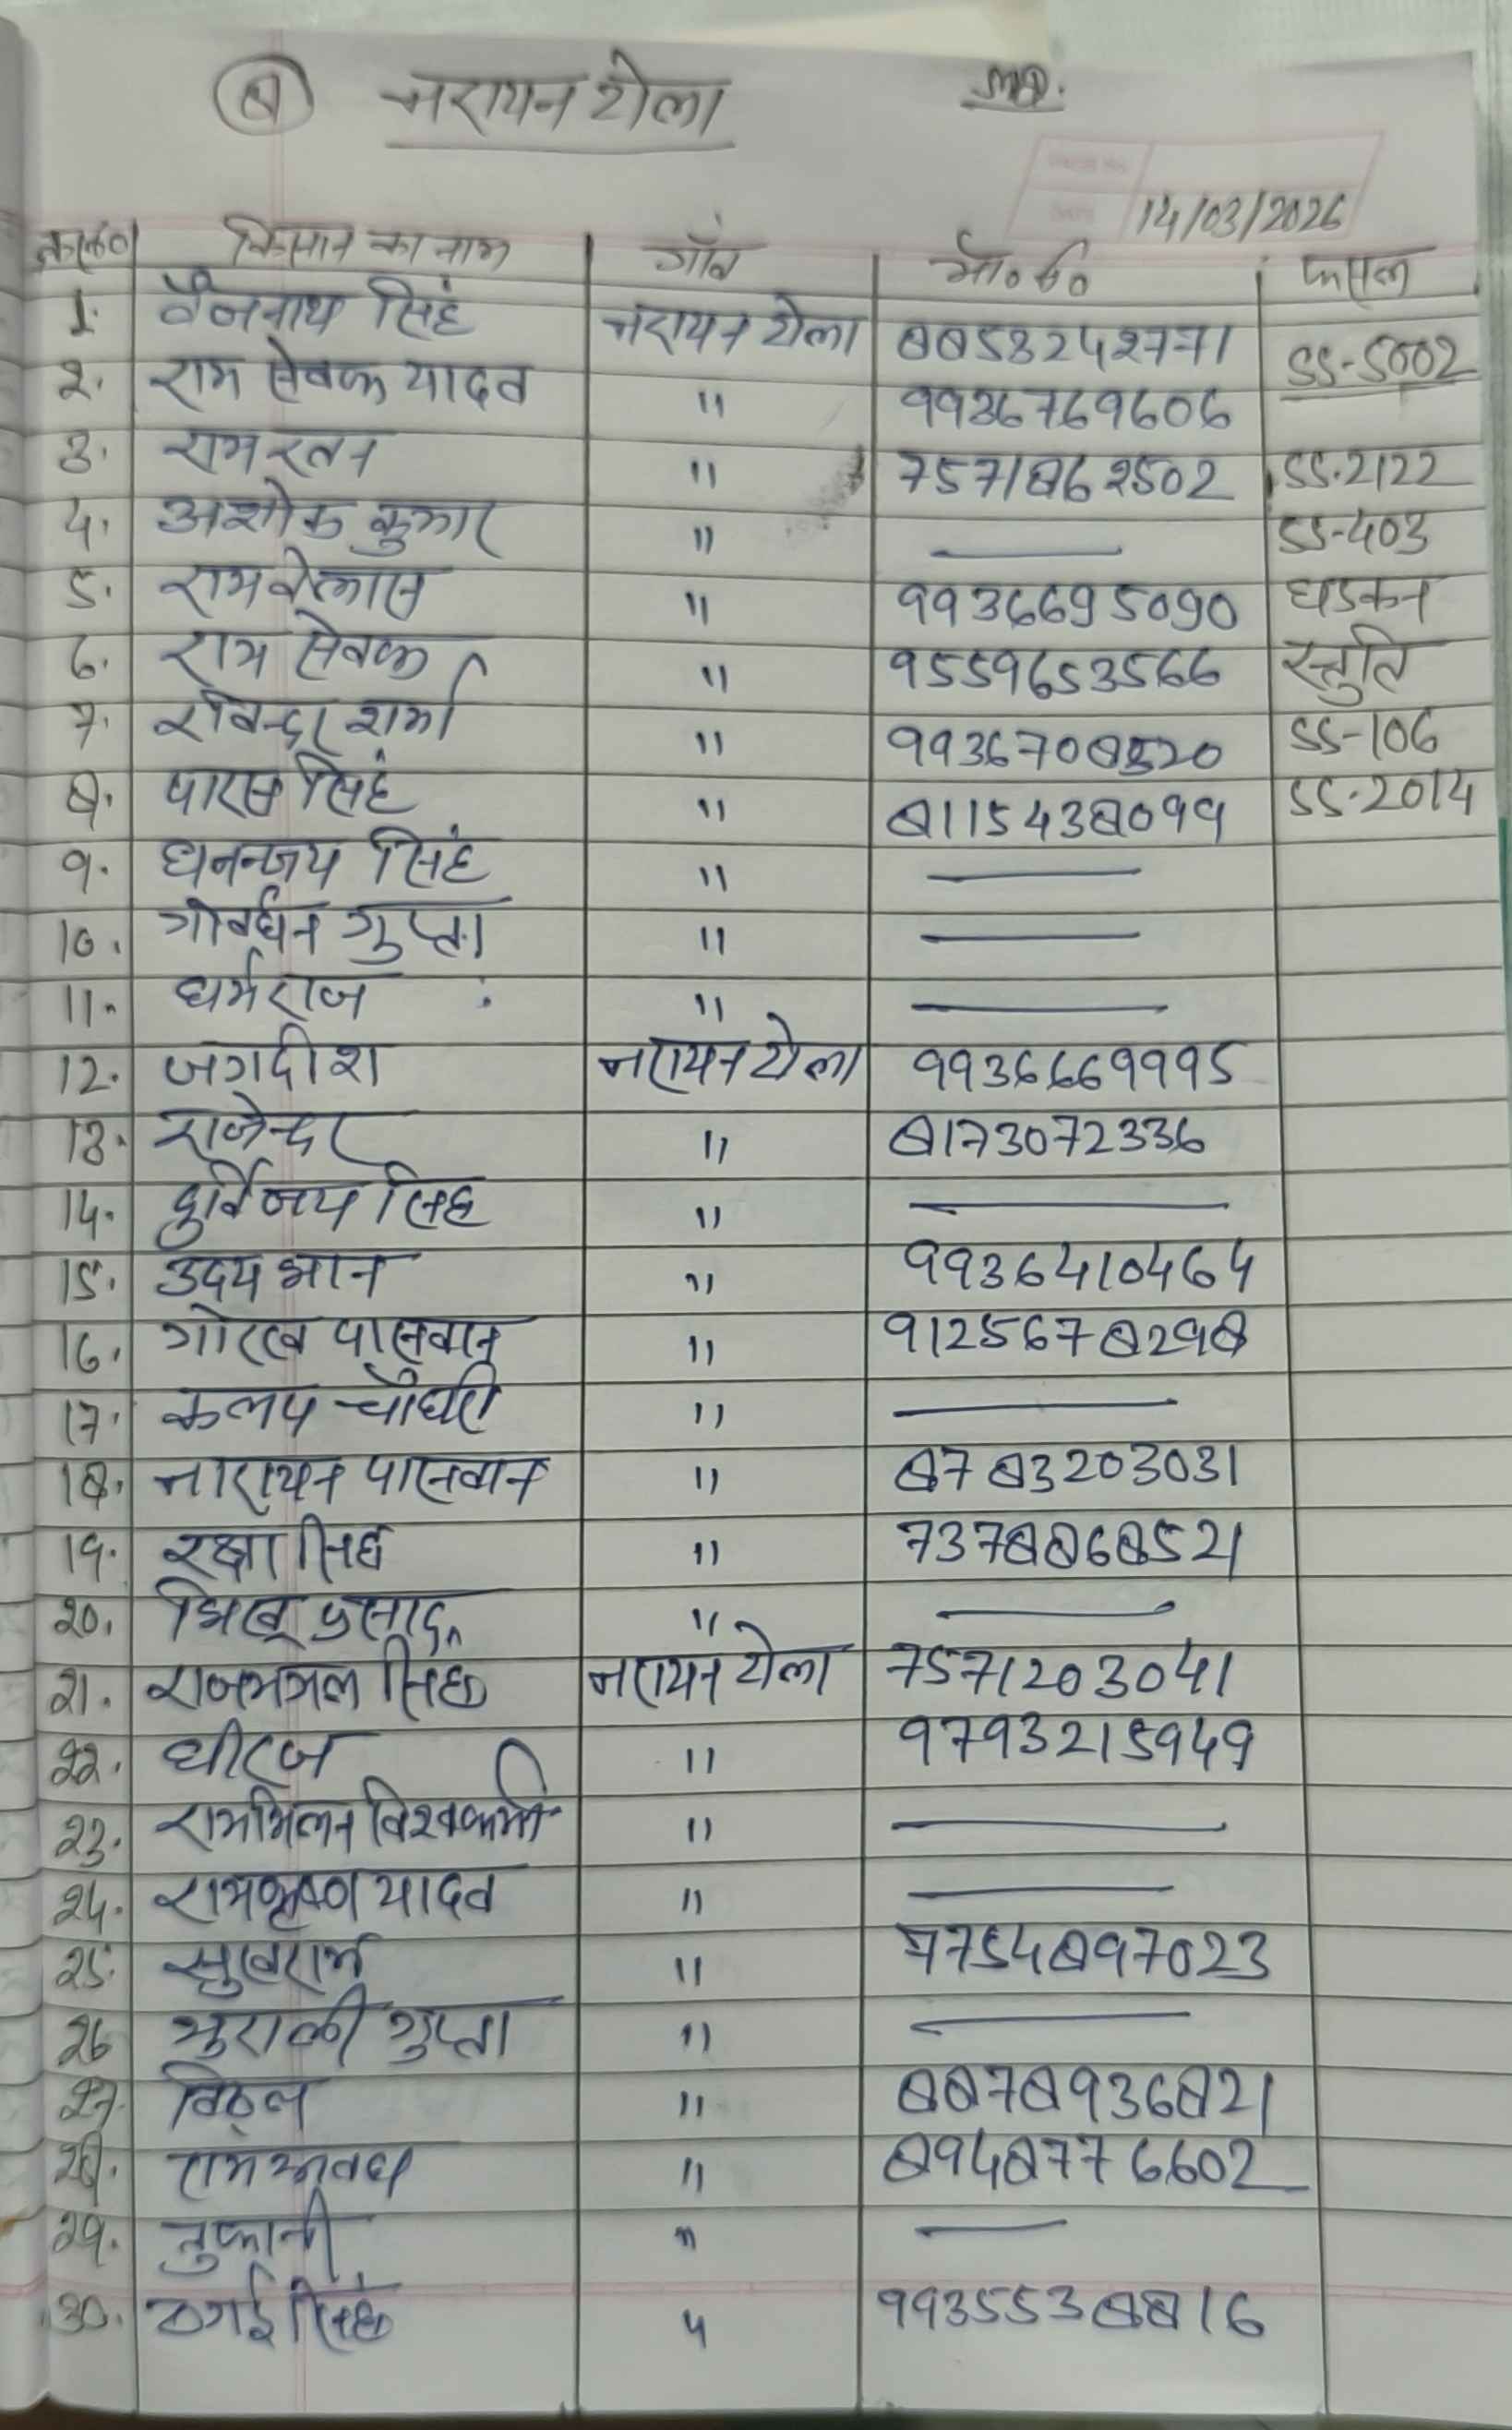 8 नरायन टोला
14/03/2026
क्र०सं० किसान का नाम गाँव मो० नं० फसल
1. बैजनाथ सिहं नरायन टोला 8858242771 SS-5002
2. राम सेवक यादव " 9936769606
3. रामरतन " 7571862502 SS-2122
4. अशोक कुमार " — SS-403
5. रामवेलास " 9936695090 धडकन
6. राम सेवक " 9559653566 स्तुति
7. रविन्द्र शर्मा " 9936708520 SS-106
8. पारस सिहं " 8115438099 SS-2014
9. धनन्जय सिहं " —
10. गोवर्धन गुप्ता " —
11. धर्मराज " —
12. जगदीश नरायन टोला 9936669995
13. राजेन्दर " 8173072336
14. दुर्विजय सिंह " —
15. उदयभान " 9936410464
16. गोरख पासवान " 9125678298
17. कलप चौधरी " —
18. नारायन पासवान " 8783203031
19. रक्षा सिंह " 7378868521
20. भिखू प्रसाद " —
21. राजमंगल सिंह नरायन टोला 7571203041
22. धीरज " 9793215949
23. राममिलन विश्वकर्मा " —
24. रामकृष्ण यादव " —
25. सुखराम " 7754897023
26 मुराली गुप्ता " —
27. विठ्ल " 8878936821
28. रामअवध " 8948776602
29. तुफानी " —
30. ठगई सिंह " 9935538816